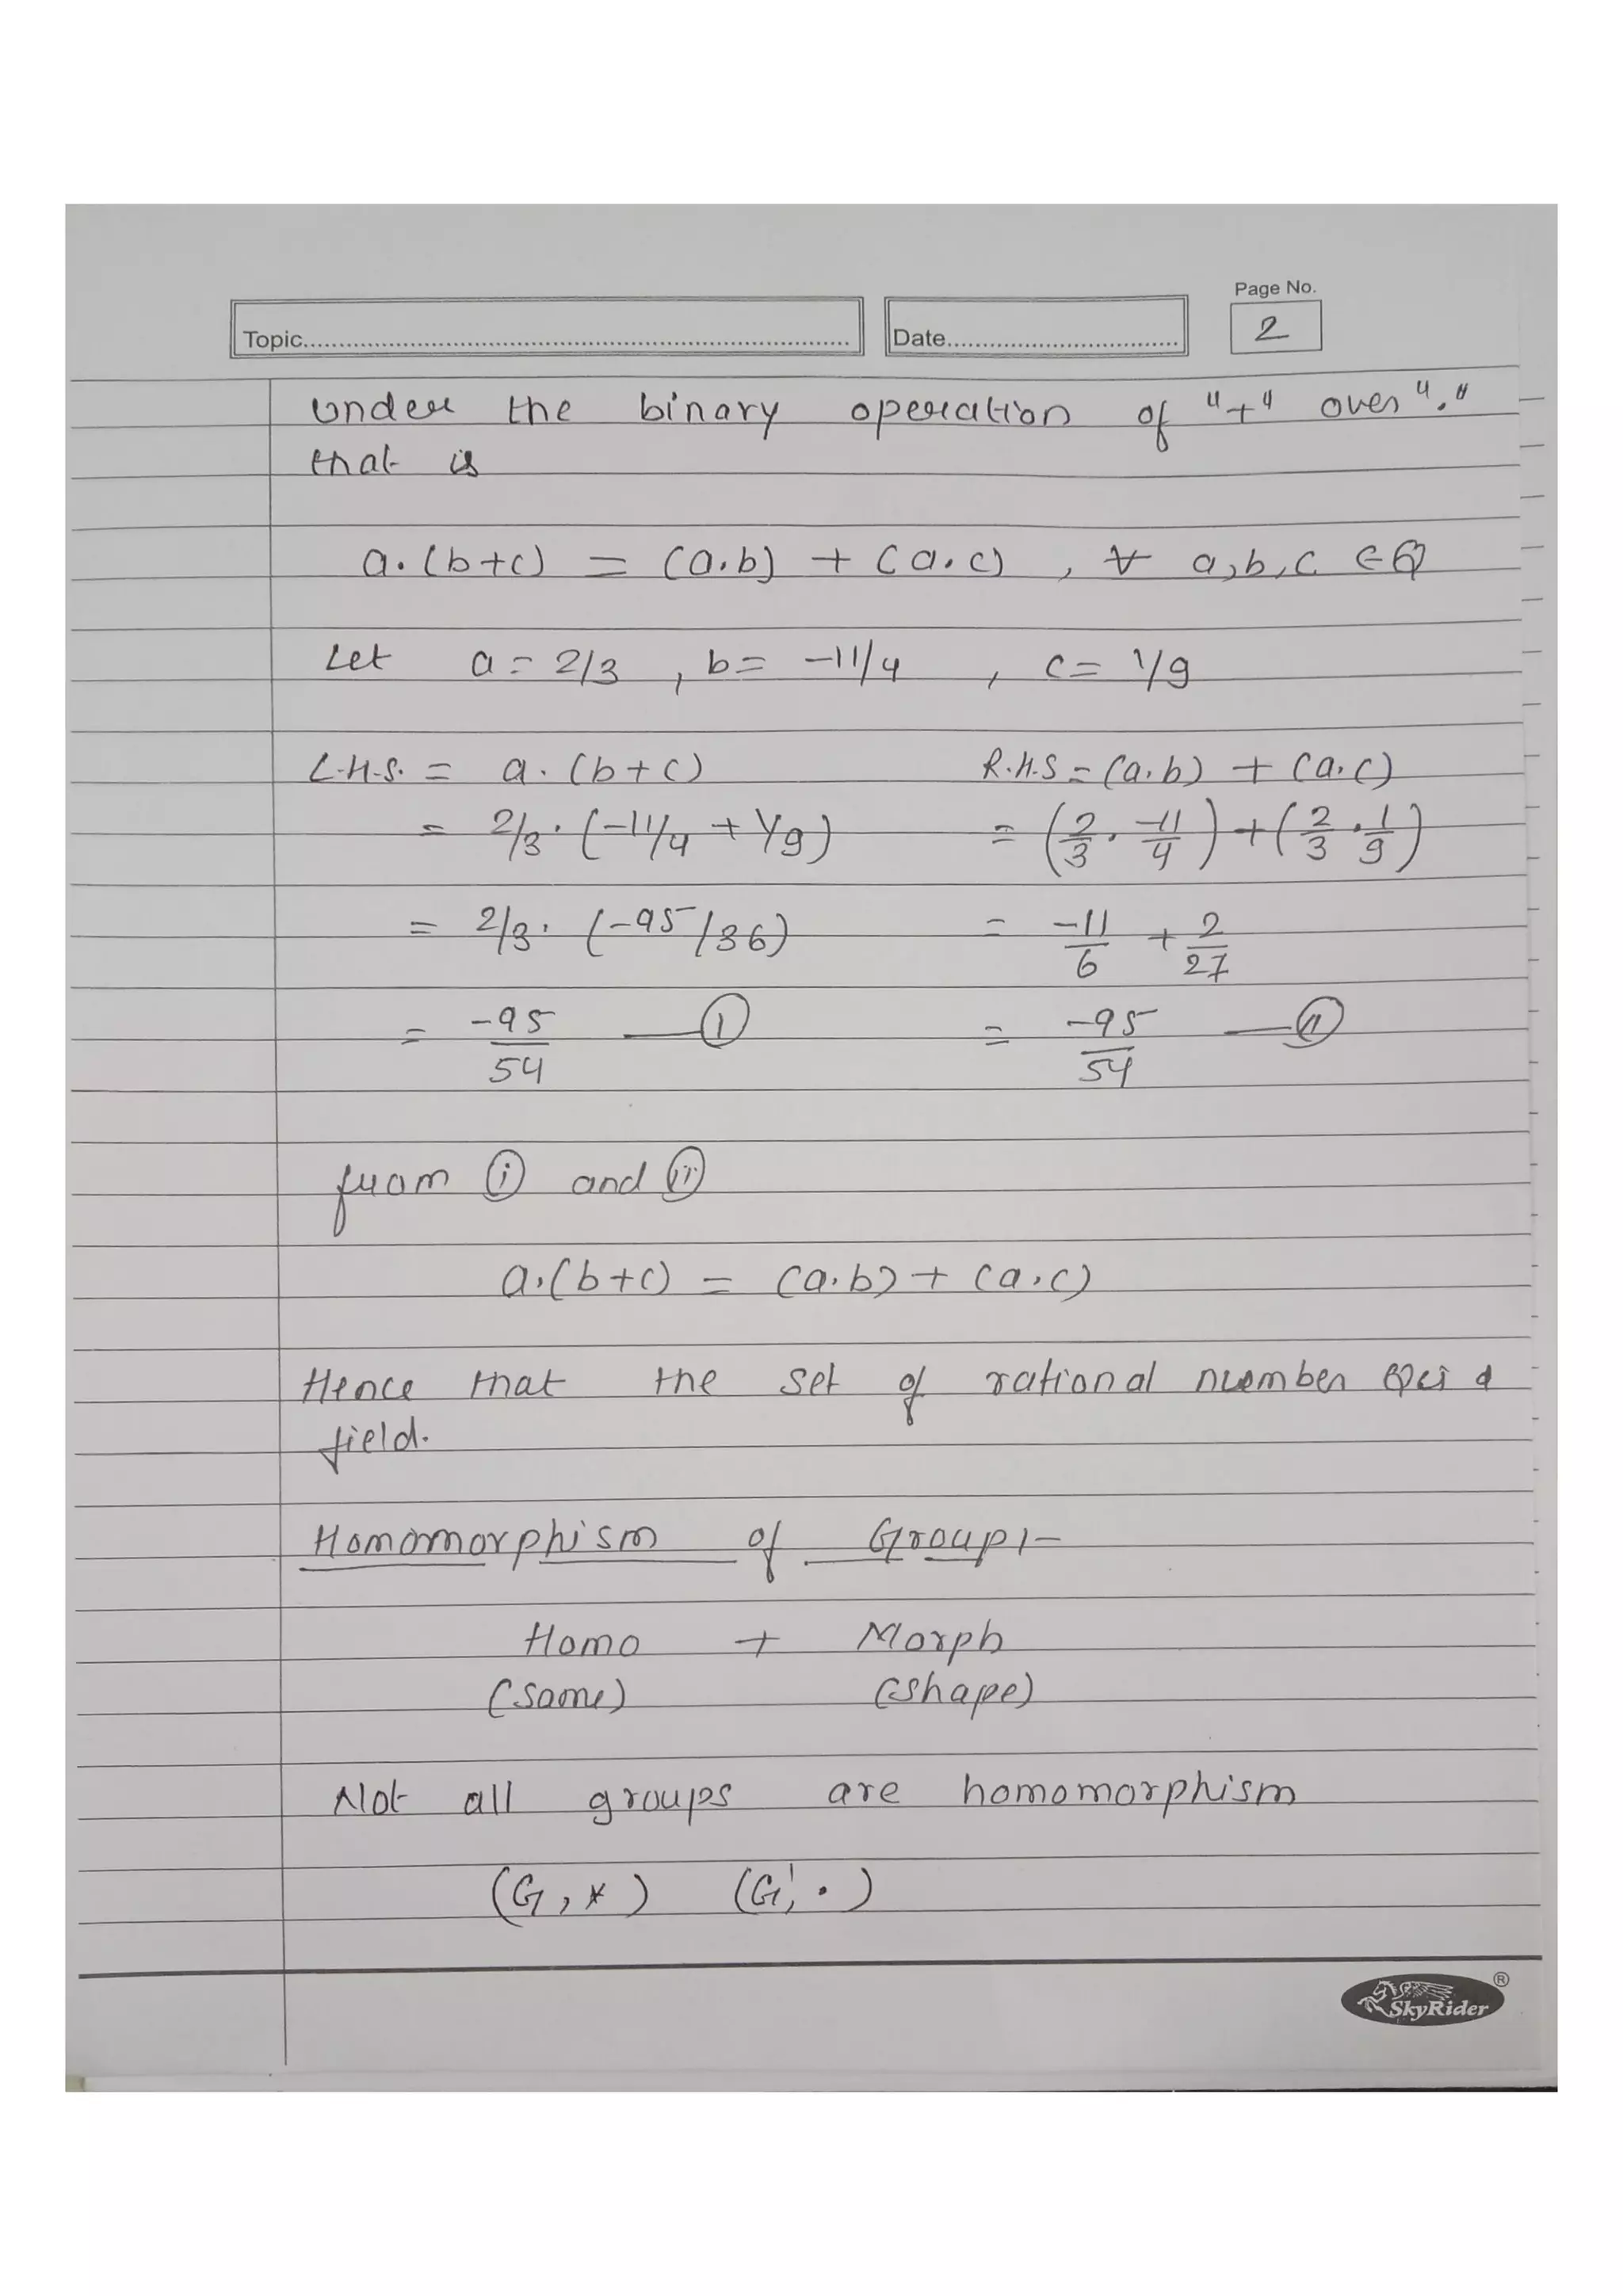 Page No.
Topic.......... Date.......... 2
under the binary operation of "+" over "."
that is
a.(b+c) = (a.b) + (a.c) , ∀ a,b,c ∈ Q
Let a = 2/3 , b = -11/4 , c = 1/9
L.H.S. = a.(b+c) R.H.S = (a.b) + (a.c)
= 2/3 . (-11/4 + 1/9) = (2/3 . -11/4) + (2/3 . 1/9)
= 2/3 . (-95/36) = -11/6 + 2/27
= -95/54 —(i) = -95/54 —(ii)
from (i) and (ii)
a.(b+c) = (a.b) + (a.c)
Hence that the set of rational number Q is a
field.
Homomorphism of Group:-
Homo + Morph
(same) (shape)
Not all groups are homomorphism
(G, *) (G', .)
SkyRider ®